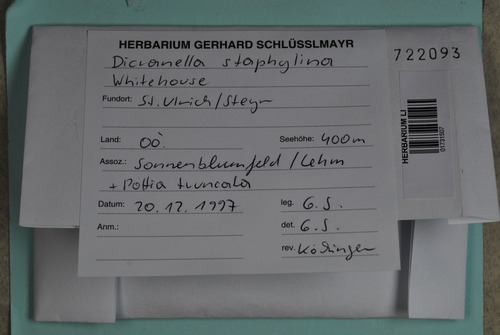 HERBARIUM GERHARD SCHLÜSSLMAYR
Dicranella staphylina
Whitehouse
Fundort: St. Ulrich/Steyr
Land: OÖ. Seehöhe: 400m
Assoz.: Sonnenblumfeld/Lehm
+ Pottia truncata
Datum: 20.12.1997 leg. G.S.
det. G.S.
Anm.: rev. Köckinger
722093
HERBARIUM LI
01731507